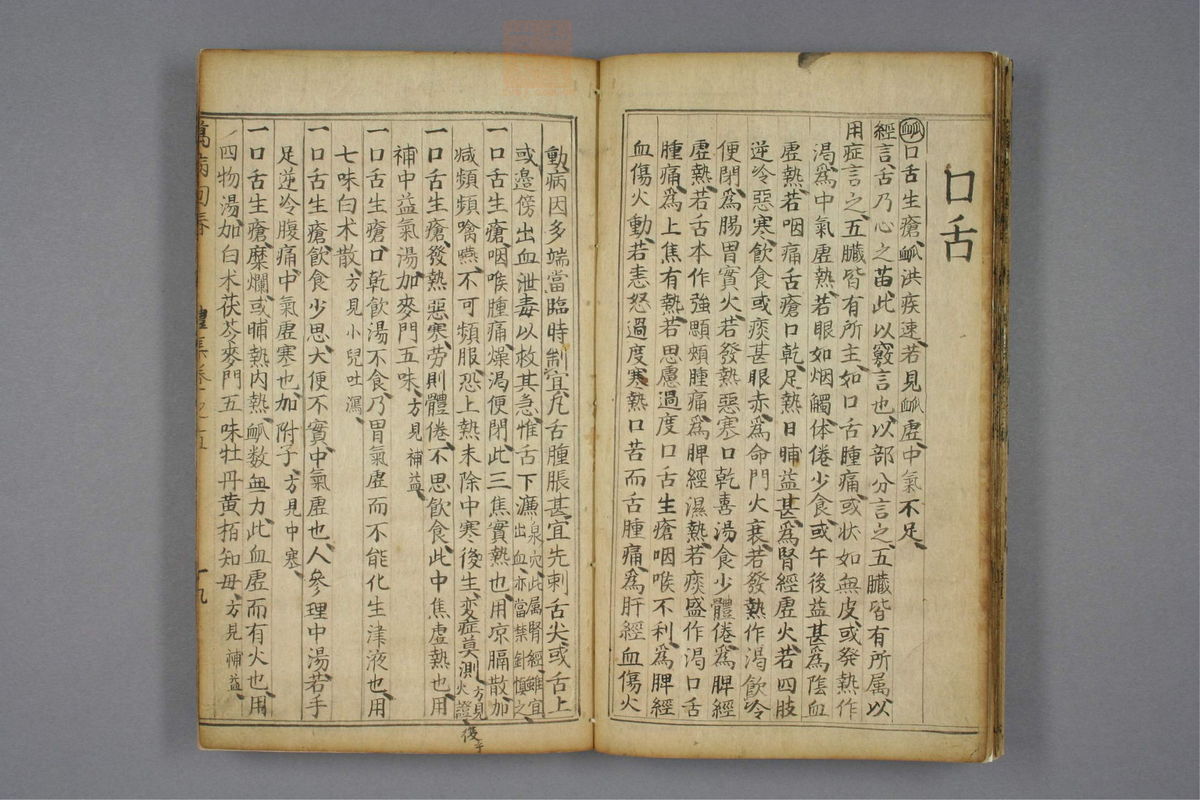 口舌
脈口舌生瘡脈洪疾速若見脈虛中氣不足
經言舌乃心之苗此以竅言也以部分言之五臟皆有所属以
用症言之五臟皆有所主如口舌腫痛或狀如無皮或発熱作
渴爲中氣虛熱若眼如烟觸体倦少食或午後益甚爲陰血
虛熱若咽痛舌瘡口乾足熱日晡益甚爲腎經虛火若四肢
逆冷惡寒飲食或痰甚眼赤爲命門火衰若發熱作渴飲冷
便閉爲腸胃實火若發熱惡寒口乾喜湯食少體倦爲脾經
虛熱若舌本作強顋頰腫痛爲脾經濕熱若痰盛作渴口舌
腫痛爲上焦有熱若思慮過度口舌生瘡咽喉不利爲脾經
血傷火動若恚怒過度寒熱口苦而舌腫痛爲肝經血傷火
動病因多端當臨時制宜凢舌腫脹甚宜先刺舌尖或舌上
或邉傍出血泄毒以救其急惟舌下濂泉穴此属腎經雖宜出血亦當禁針愼之
一口舌生瘡咽喉腫痛燥渴便閉此三焦實熱也用凉膈散加
减頻頻噙嚥不可頻服恐上熱未除中寒後生変症莫測方見火證
復乎
一口舌生瘡發熱惡寒劳則體倦不思飲食此中焦虛熱也用
補中益氣湯加麥門五味方見補益
一口舌生瘡口乾飲湯不食乃胃氣虛而不能化生津液也用
七味白术散方見小兒吐瀉
一口舌生瘡飲食少思大便不實中氣虛也人參理中湯若手
足逆冷腹痛中氣虛寒也加附子方見中寒
一口舌生瘡糜爛或晡熱内熱脈数無力此血虛而有火也用
四物湯加白术茯苓麥門五味牡丹黄栢知母方見補益
萬病回春 禮集卷之五 十九